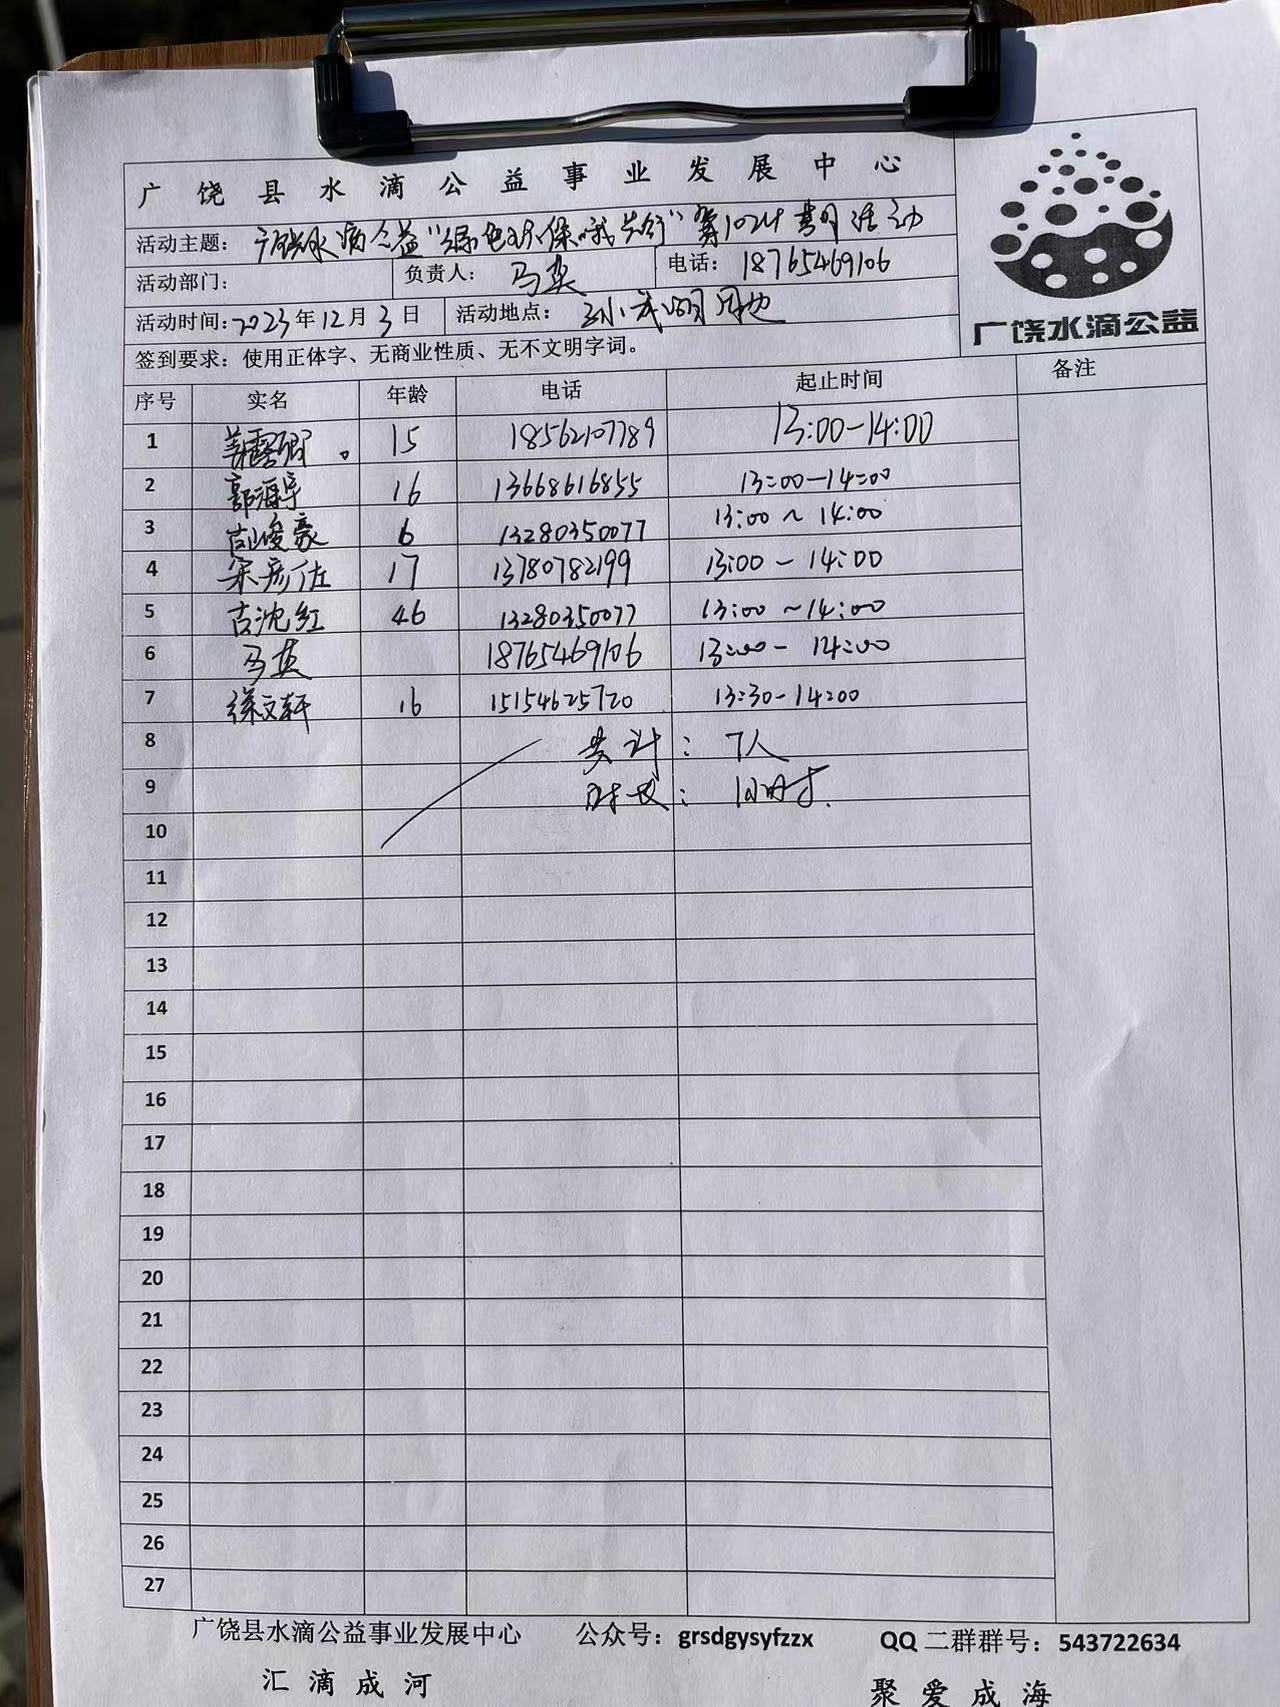 广饶县水滴公益事业发展中心
活动主题：广饶水滴公益“绿色环保 我先行”第1024期活动
活动部门： 负责人：马英 电话：18765469106
活动时间：2023年12月3日 活动地点：孙武湖周边
广饶水滴公益
签到要求：使用正体字、无商业性质、无不文明字词。
序号 实名 年龄 电话 起止时间 备注
1 15 18562107789 13:00-14:00
2 郭海宇 16 13668616855 13:00-14:00
3 古峻豪 6 13280350077 13:00~14:00
4 宋彦佐 17 13780782199 13:00-14:00
5 古沈红 46 13280350077 13:00~14:00
6 马英 18765469106 13:00-14:00
7 徐文轩 16 15154625720 13:30-14:00
8 共计：7人
9 时长：1小时.
10
11
12
13
14
15
16
17
18
19
20
21
22
23
24
25
26
27
广饶县水滴公益事业发展中心 公众号：grsdgysyfzzx QQ二群群号：543722634
汇滴成河 聚爱成海